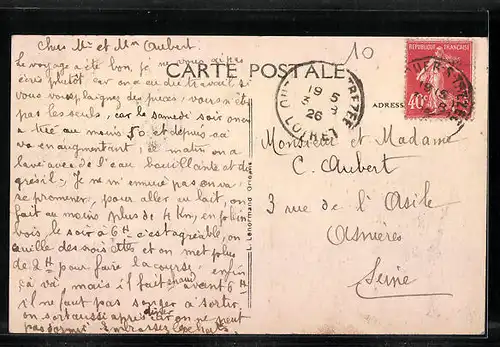 Cher Mr et Mme Aubert.
Le voyage a été bon, je ne vous ai pas
écris plutôt car on a eu du travail si
vous vous plaignez des puces, vous n'êtes
pas les seuls, car le samedi soir on en
a tué au moins 50 et depuis ça
va en augmentant matin on a
lavé avec de l'eau bouillante et du
grésil, Je ne m'ennuie pas on va
se promener, pour aller au lait, on
fait au moins plus de 4 Km, en
bois, le soir à 6H c'est agréable, on
cueille des noisettes et on met plus
de 2H pour faire la course, enfin
ça va mais il fait chaud avant 6H
il ne faut pas songer à sortir,
on sort aussi après dîner car on ne peut
pas dormir
CARTE POSTALE
ADRESSE
RÉPUBLIQUE FRANÇAISE
40c
19 5
26
LOIRET
10
L. Lenormand Orléans
Monsieur et Madame
C. Aubert
3 rue de l'Asile
Asnières
Seine